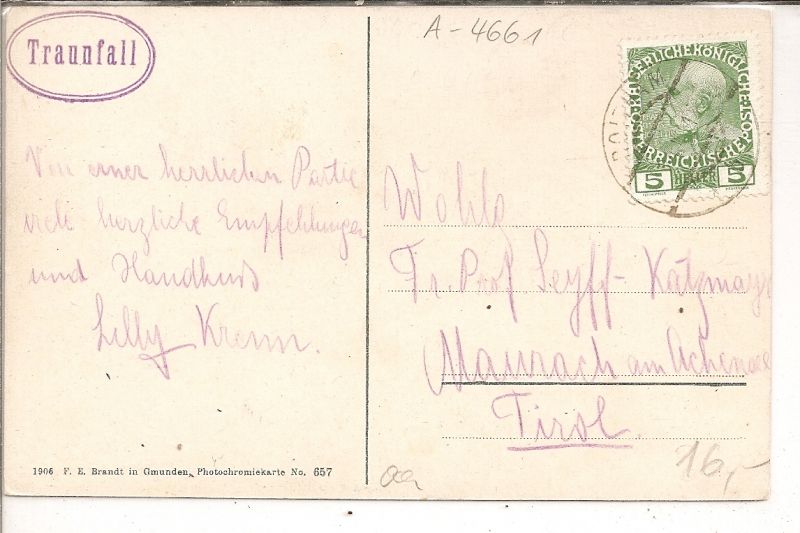 Traunfall
A-4661
KAISERLICHE KÖNIGLICHE
ÖSTERREICHISCHE POST
5 HELLER 5
Von einer herrlichen Partie
viele herzliche Empfehlungen
und Handkuss
Lilly Krenn.
Wohlg
Fr. Prof Seyff-Katzmayr
Maurach am Achensee
Tirol
16,-
1906 F. E. Brandt in Gmunden, Photochromiekarte No. 657